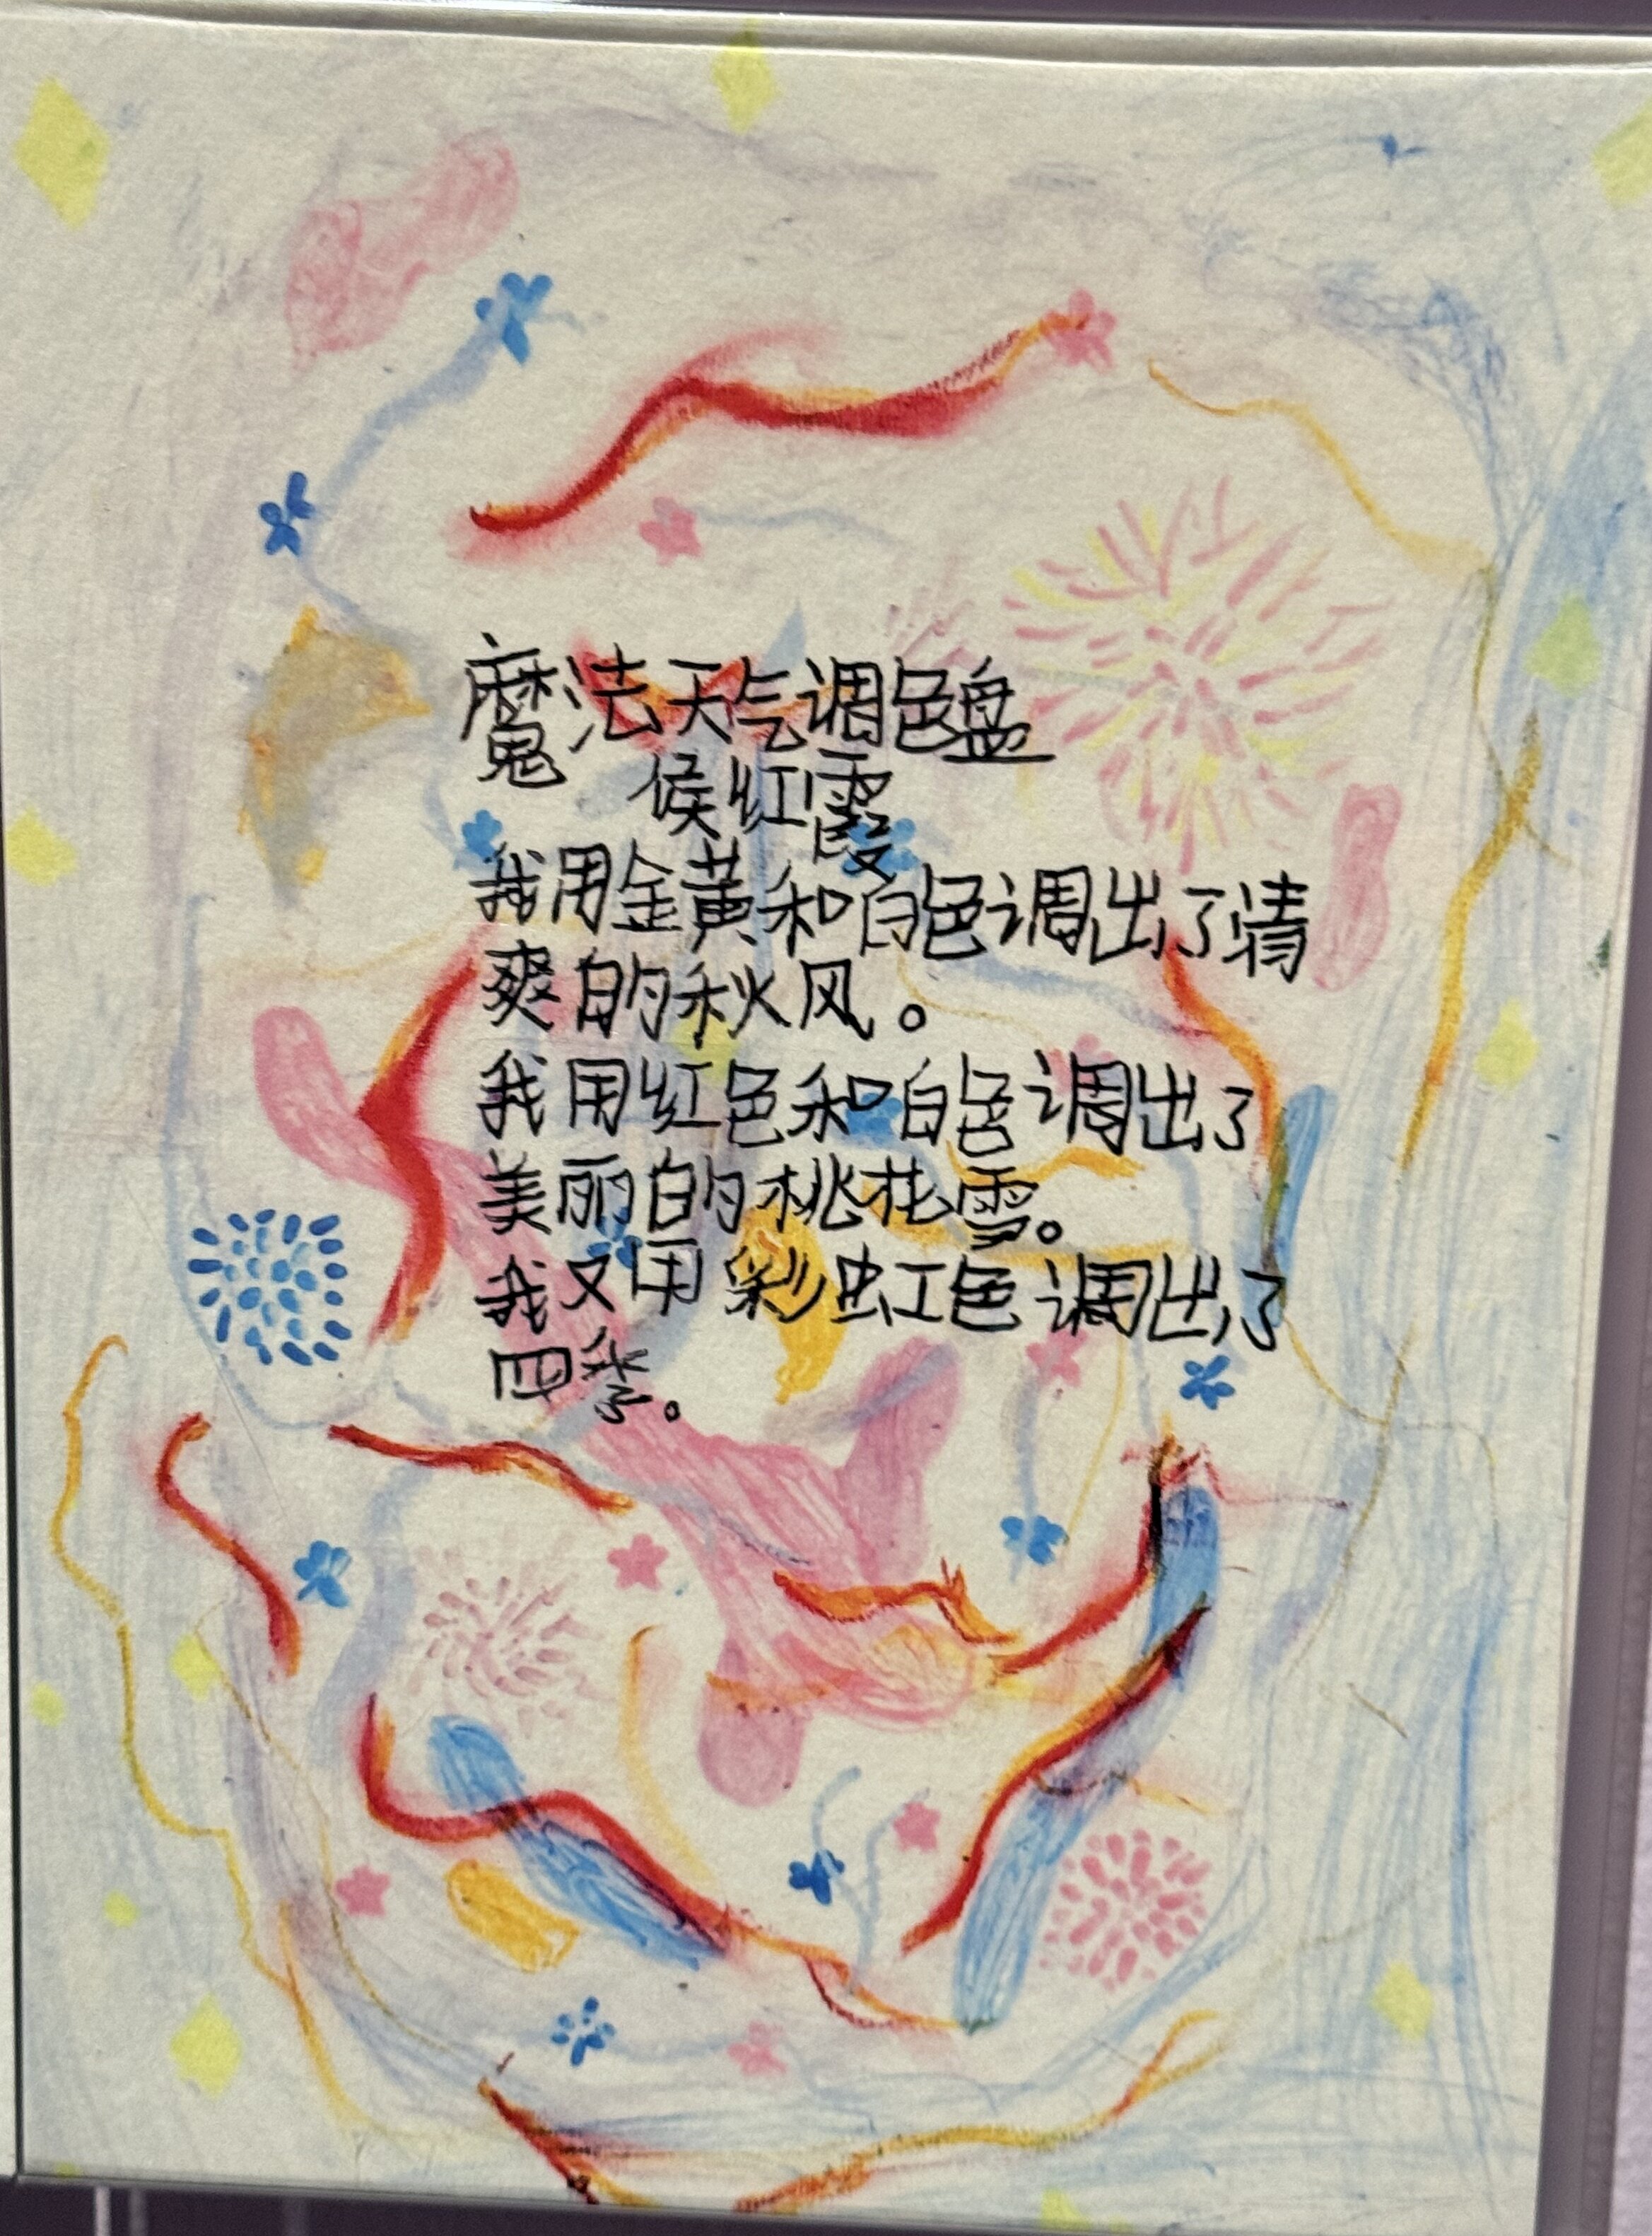 魔法天气调色盘
侯红霞
我用金黄和白色调出了清
爽的秋风。
我用红色和白色调出了
美丽的桃花雪。
我又用彩虹色调出了
四季。